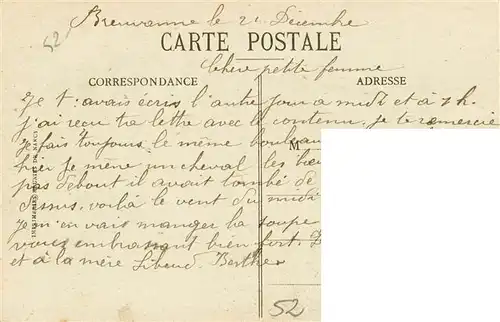 52 Breuvanne le 21 Décembre
CARTE POSTALE
Chère petite femme
CORRESPONDANCE ADRESSE
Je t'avais écris l'autre jour a midi et à 7h.
j'ai reçu ta lettre avec le contenu, je te remercie
Je fais toujours le même
M
hier je mène un cheval les
pas debout il avait tombé de
voilà le vent du midi
Je m'en vais manger la soupe
vous embrassant bien fort.
et à la mère
52